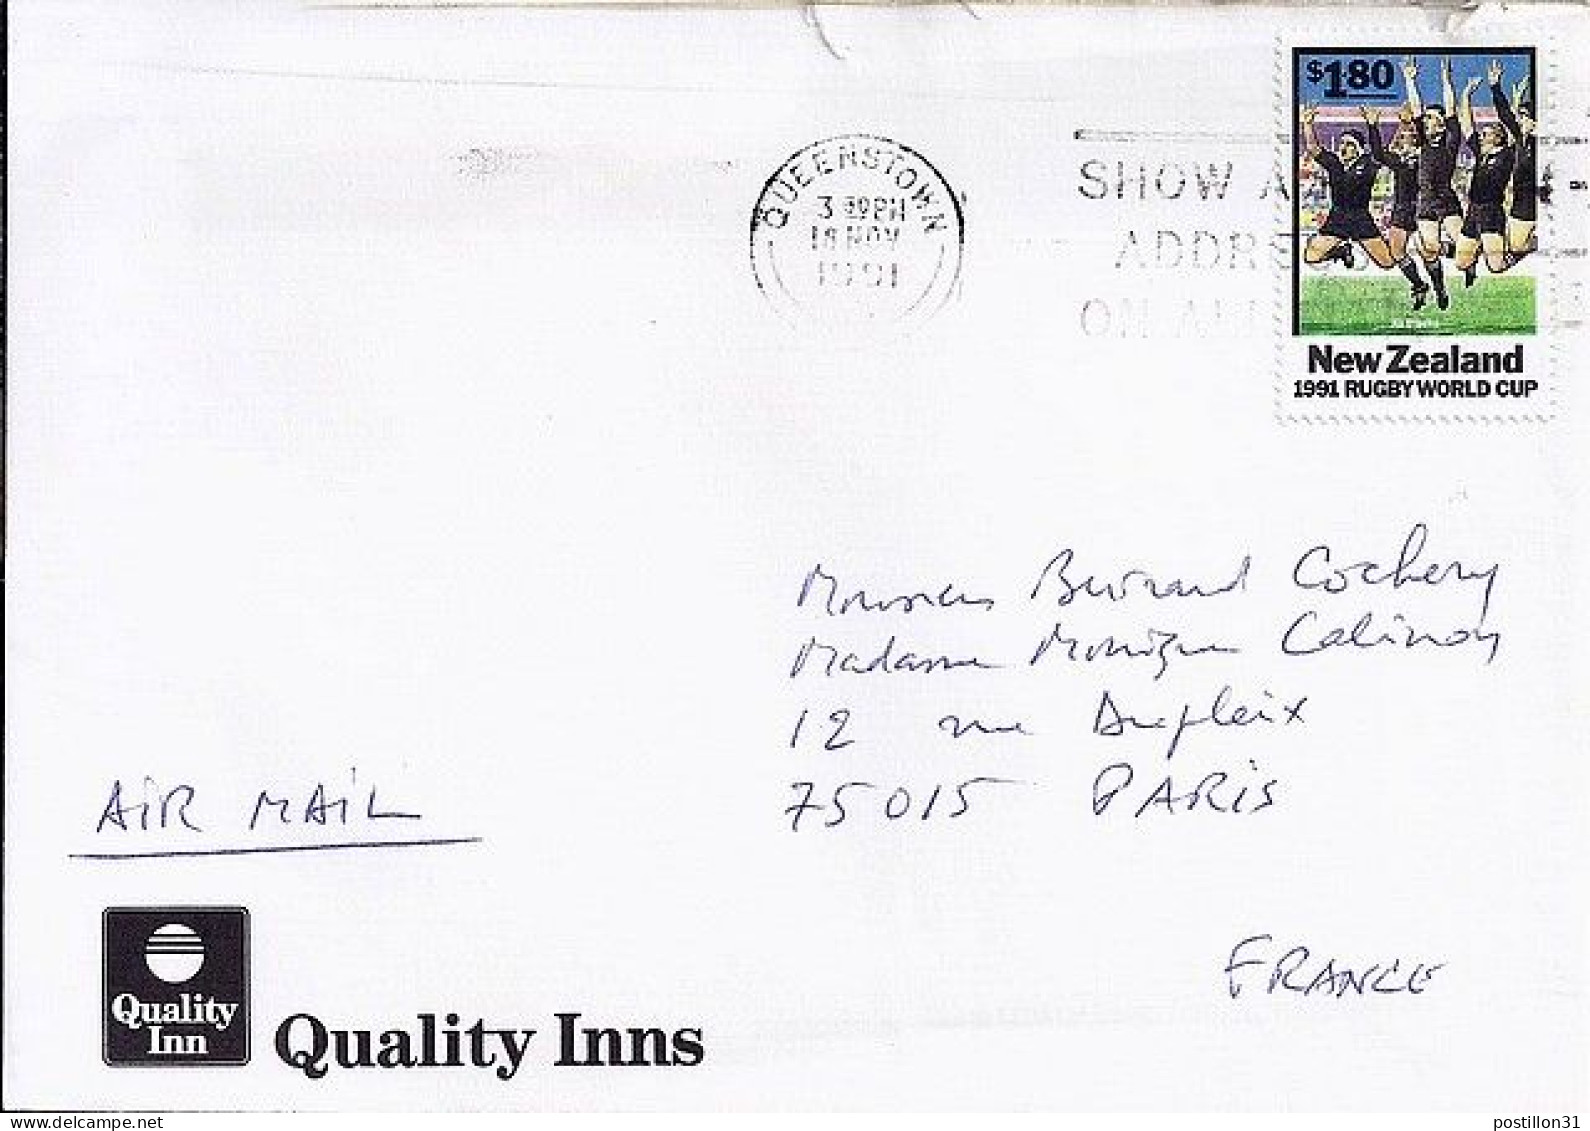 $1.80
New Zealand
1991 RUGBY WORLD CUP
QUEENSTOWN
3 PM
18 NOV
1991
SHOW A
ADDRESS
ON ALL
Monsieur Bertrand Cochery
Madame Monique Calinon
12 rue Dupleix
75015 PARIS
FRANCE
AIR MAIL
Quality
Inn
Quality Inns
www.delcampe.net
postillon31